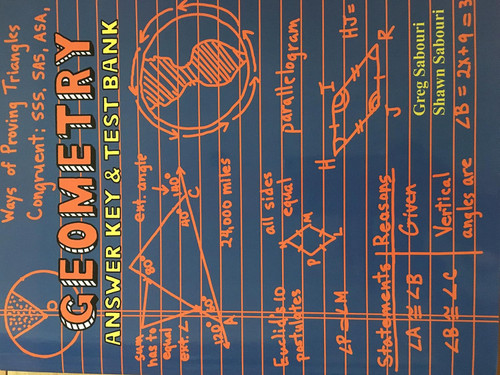 Ways of Proving Triangles
Congruent: SSS, SAS, ASA,
GEOMETRY
ANSWER KEY & TEST BANK
sum
has to
equal
ext. ∠
ext. angle
80°
40°
140°
C
120°
A
24,000 miles
Euclid's 10
postulates
all sides
equal
P
M
L
∠P ≅ ∠M
parallelogram
H
I
J
R
HJ =
Statements
Reasons
∠A ≅ ∠B
Given
∠B ≅ ∠C
Vertical
angles are
Greg Sabouri
Shawn Sabouri
∠B = 2x+9 = 3